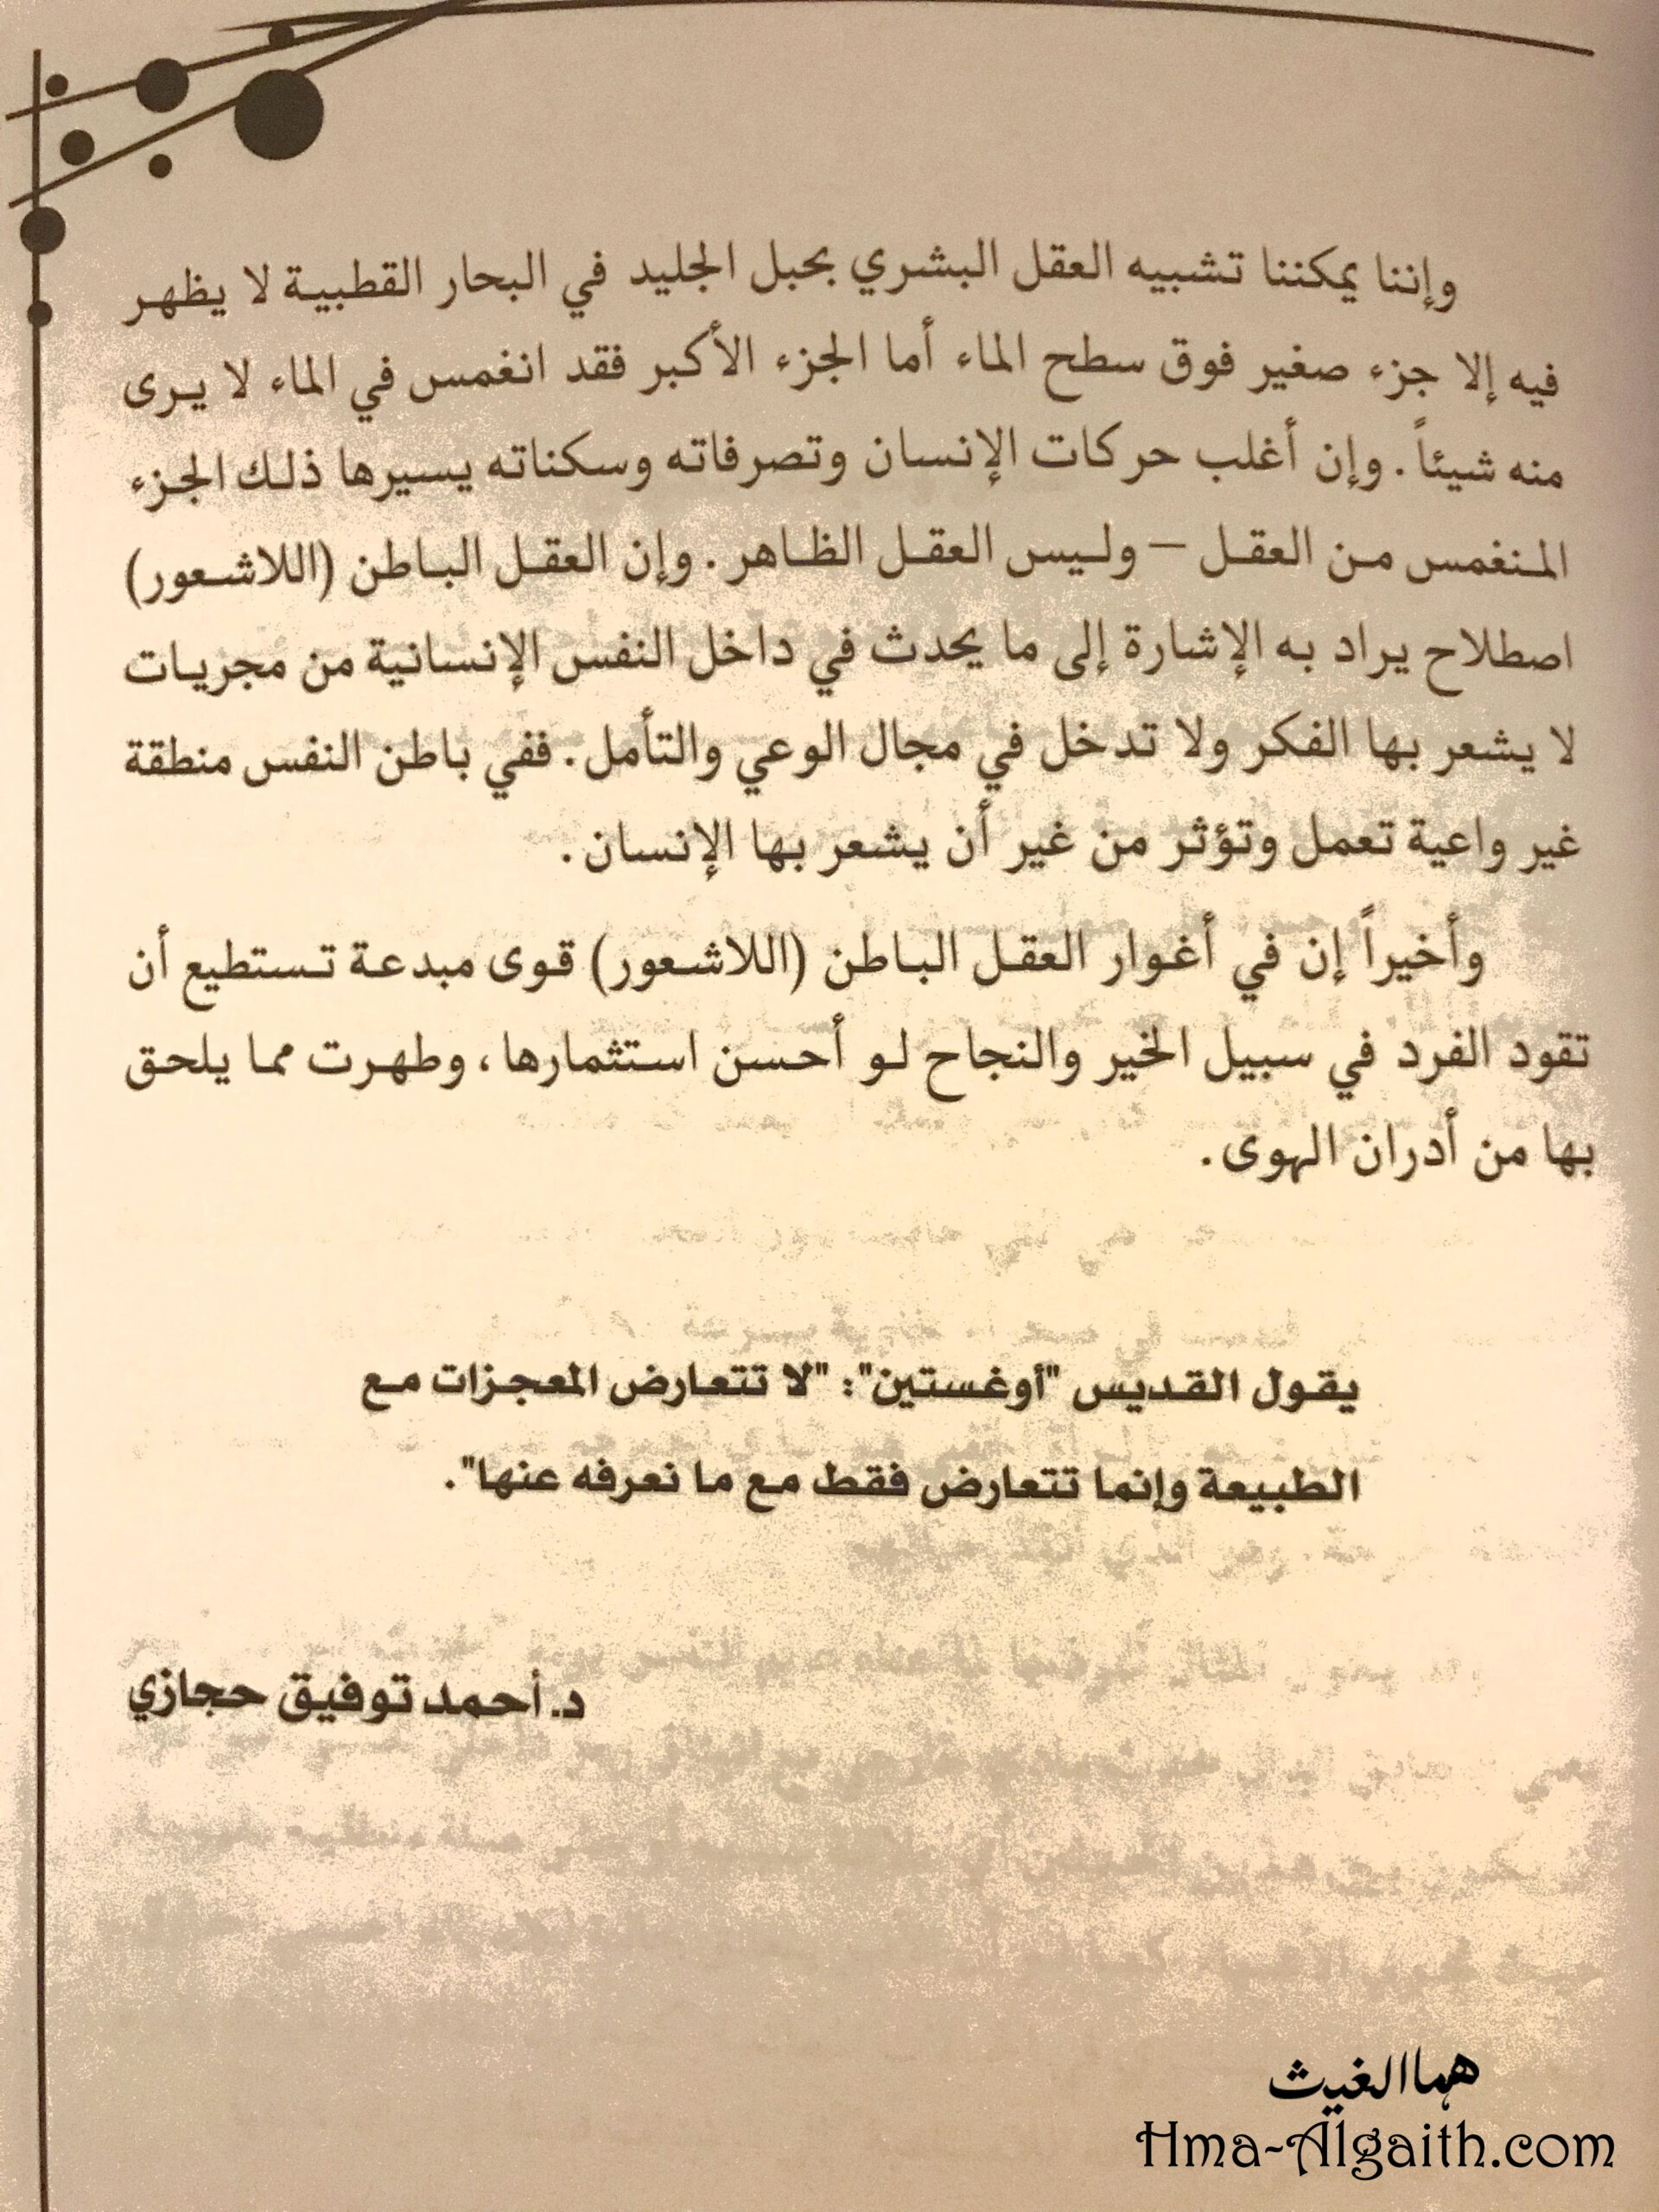 وإننا يمكننا تشبيه العقل البشري بحبل الجليد في البحار القطبية لا يظهر
فيه إلا جزء صغير فوق سطح الماء أما الجزء الأكبر فقد انغمس في الماء لا يرى
منه شيئاً. وإن أغلب حركات الإنسان وتصرفاته وسكناته يسيرها ذلك الجزء
المنغمس من العقل – وليس العقل الظاهر. وإن العقل الباطن (اللاشعور)
اصطلاح يراد به الإشارة إلى ما يحدث في داخل النفس الإنسانية من مجريات
لا يشعر بها الفكر ولا تدخل في مجال الوعي والتأمل. ففي باطن النفس منطقة
غير واعية تعمل وتؤثر من غير أن يشعر بها الإنسان.
وأخيراً إن في أغوار العقل الباطن (اللاشعور) قوى مبدعة تستطيع أن
تقود الفرد في سبيل الخير والنجاح لو أحسن استثمارها، وطهرت مما يلحق
بها من أدران الهوى.
يقول القديس "أوغستين": "لا تتعارض المعجزات مع
الطبيعة وإنما تتعارض فقط مع ما نعرفه عنها".
د. أحمد توفيق حجازي
هما الغيث
Hma-Algaith.com